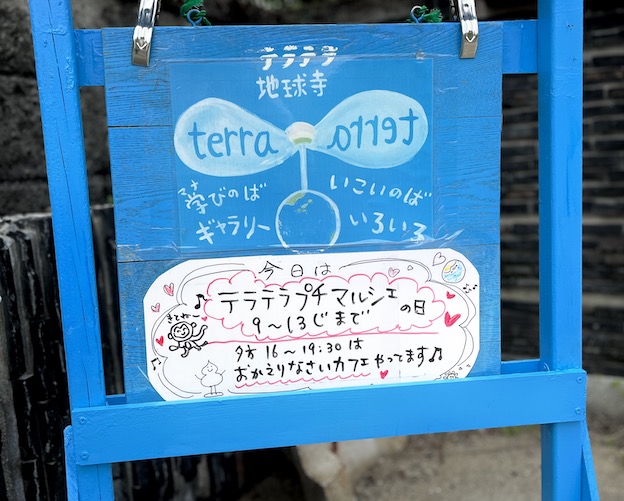 テラテラ
地球寺
terra
学びのば
ギャラリー
いこいのば
いろいろ
今日は
テラテラプチマルシェの日
9〜13じまで
夕方16〜19:30は
おかえりなさいカフェやってます♪